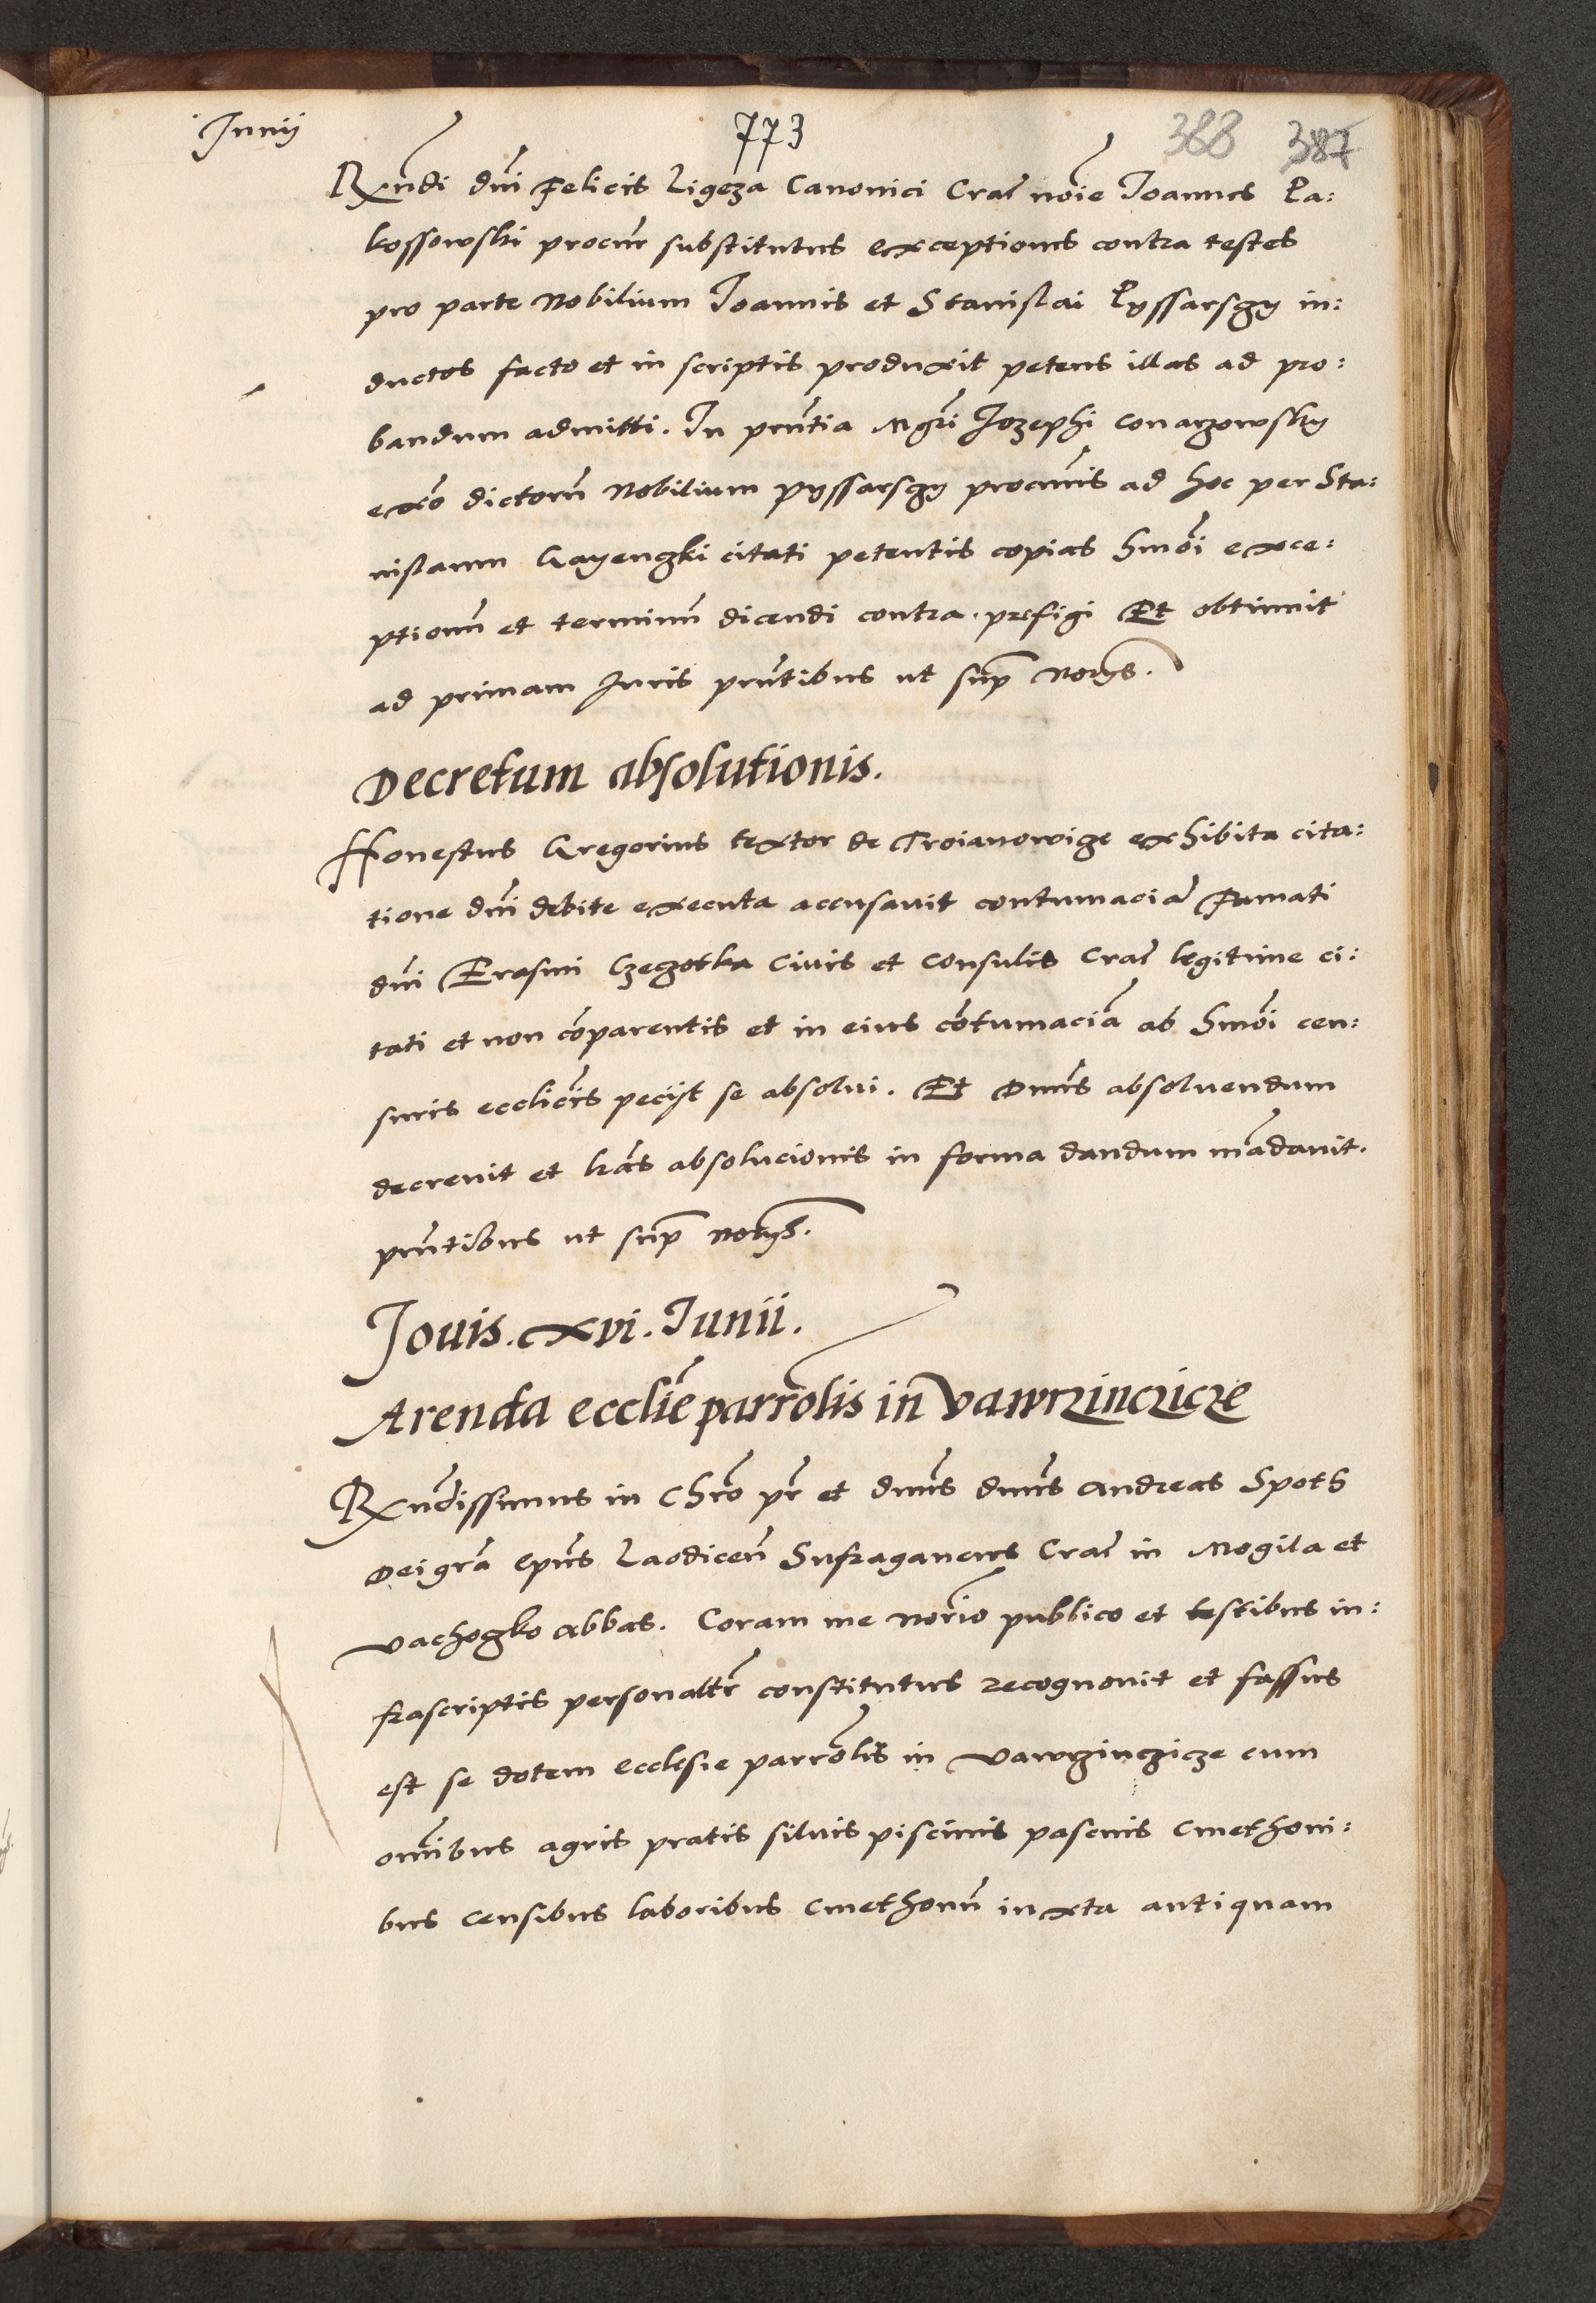 Junij
773
388 387
Rxndi dni Felicis Ligeza Canonici Crac noie Joannes Pa:
kossowski procur substitutus exceptiones contra testes
pro parte Nobilium Joannis et Stanislai Pyssarsgy in:
ductos facto et in scriptis produxit petens illas ad pro:
bandum admitti. In pntia Mgri Jozephi conarzowsky
exo dictorn Nobilium pyssarsgy procuris ad hoc per Sta:
nislaum Gayengki citati petentis copias hmoi exce:
ptionn et terminn dicendi contra prefigi Et obtinuit
ad primam Juris pntibus ut sup notijs.
Decretum absolutionis.
Honestus Gregorius textor de Troianowize exhibita cita:
tione dni debite executa accusauit contumacia Famati
dni Erasmi Czeczotka Civis et Consulis Crac legitime ci:
tati et non comparentis et in eius cotumacia ab hmoi cen:
suris ecclicis pecijt se absolui. Et Dnus absoluendum
decreuit et lras absolucionis in forma dandum madauit.
pntibus ut sup notijs.
Jouis. xvi. Junii.
Arenda ecclie parrolis in Vawrzinczicze
Rxndissimus in Chro pr et dnus dnus Andreas Spoth
Dei gra Epus Laodicen Sufraganeus Crac in Mogila et
Vachogko Abbas. Coram me norio publico et testibus in:
frascriptis personaltr constitutus recognouit et fassus
est se dotem Ecclesie parrolis in Vawrzinczicze cum
omibus agris pratis siluis piscinis pascuis Cmethoni:
bus censibus laboribus Cmethonn iuxta antiquam